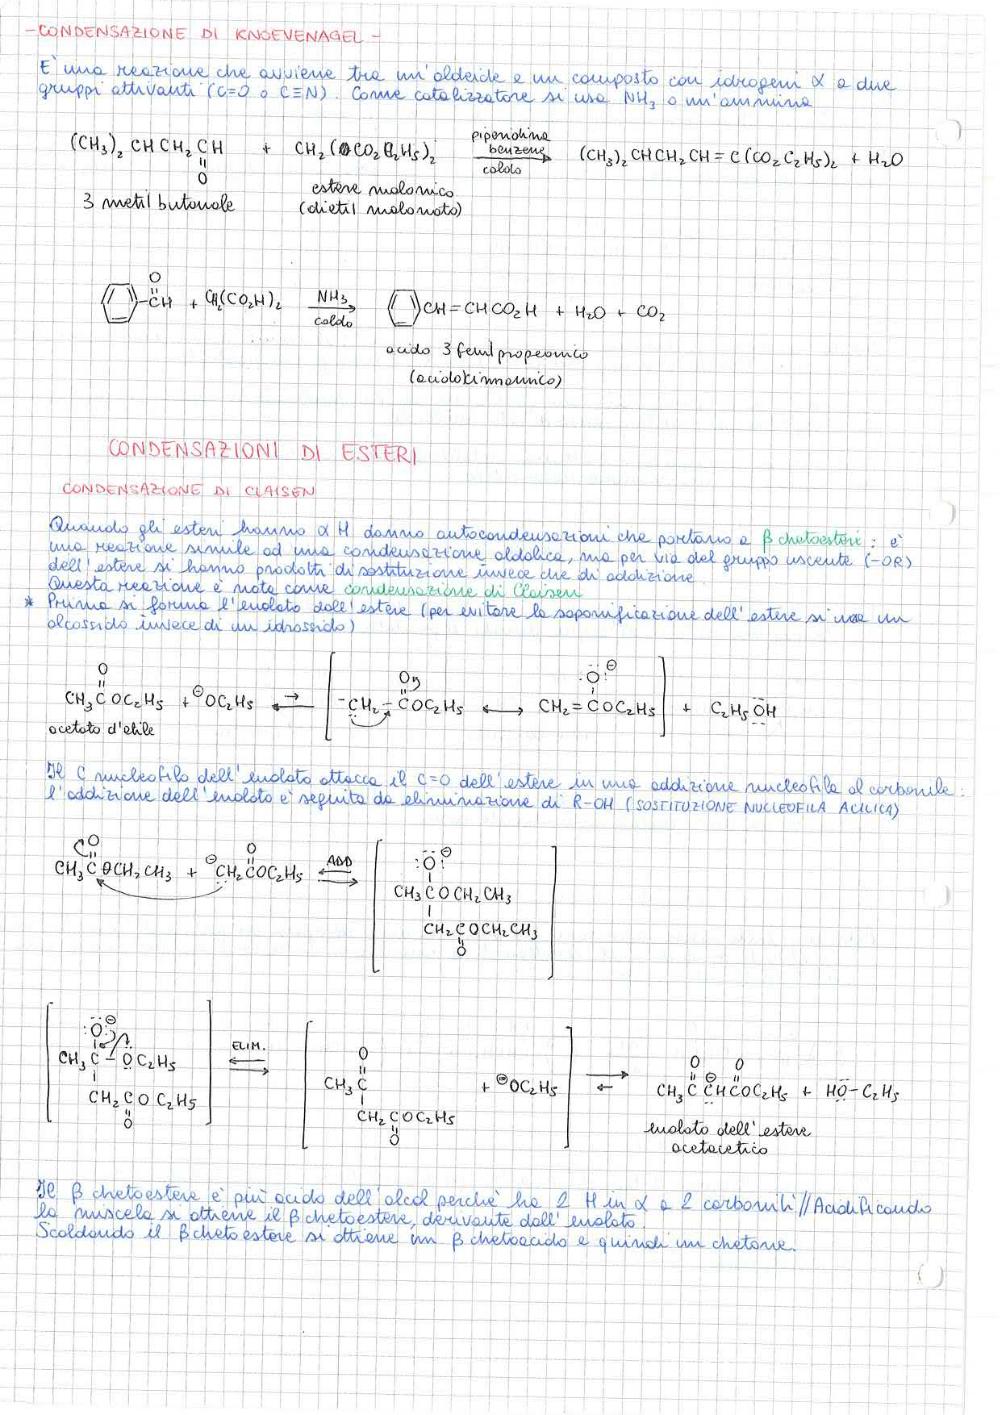 -CONDENSAZIONE DI KNOEVENAGEL-
E' una reazione che avviene tra un'aldeide e un composto con idrogeni α a due
gruppi attivanti (C=O o C≡N). Come catalizzatore si usa NH₃ o un'ammina
(CH₃)₂ CHCH₂CH=O + CH₂(CO₂C₂H₅)₂ piperidina benzene caldo → (CH₃)₂CHCH₂CH=C(CO₂C₂H₅)₂ + H₂O
3 metil butanale
estere malonico
(dietil malonato)
O
CH + CH₂(CO₂H)₂ NH₃ caldo → CH=CHCO₂H + H₂O + CO₂
acido 3 fenil propenoico
(acido cinnamico)
CONDENSAZIONI DI ESTERI
CONDENSAZIONE DI CLAISEN
Quando gli esteri hanno α H danno autocondensazioni che portano a β chetoesteri: è
una reazione simile ad una condensazione aldolica, ma per via del gruppo uscente (-OR)
dell'estere si hanno prodotti di sostituzione invece che di addizione.
Questa reazione è nota come condensazione di Claisen
* Prima si forma l'enolato dall'estere (per evitare la saponificazione dell'estere si usa un
alcossido invece di un idrossido)
O O :O:⊖
CH₃COC₂H₅ + ⊖OC₂H₅ ⇄ [ ⁻CH₂-COC₂H₅ ↔ CH₂=COC₂H₅ ] + C₂H₅OH
acetato d'etile
Il C nucleofilo dell'enolato attacca il C=O dell'estere in una addizione nucleofila al carbonile:
l'addizione dell'enolato è seguita da eliminazione di R-OH (SOSTITUZIONE NUCLEOFILA ACILICA)
O O :O:⊖
CH₃COCH₂CH₃ + ⊖CH₂COC₂H₅ ADD ⇄ [ CH₃COCH₂CH₃
CH₂COCH₂CH₃ ]
O
:O:⊖ O O O
[ CH₃C-OC₂H₅ ] ELIM. ⇄ [ CH₃C + ⊖OC₂H₅ ] ⇄ CH₃C⊖CHCOC₂H₅ + HO-C₂H₅
CH₂COC₂H₅ CH₂COC₂H₅
O O
enolato dell'estere
acetacetico
Il β chetoestere è più acido dell'alcol perchè ha 2 H in α a 2 carbonili // Acidificando
la miscela si ottiene il β chetoestere, derivante dall'enolato.
Scaldando il β chetoestere si ottiene un β chetoacido e quindi un chetone.